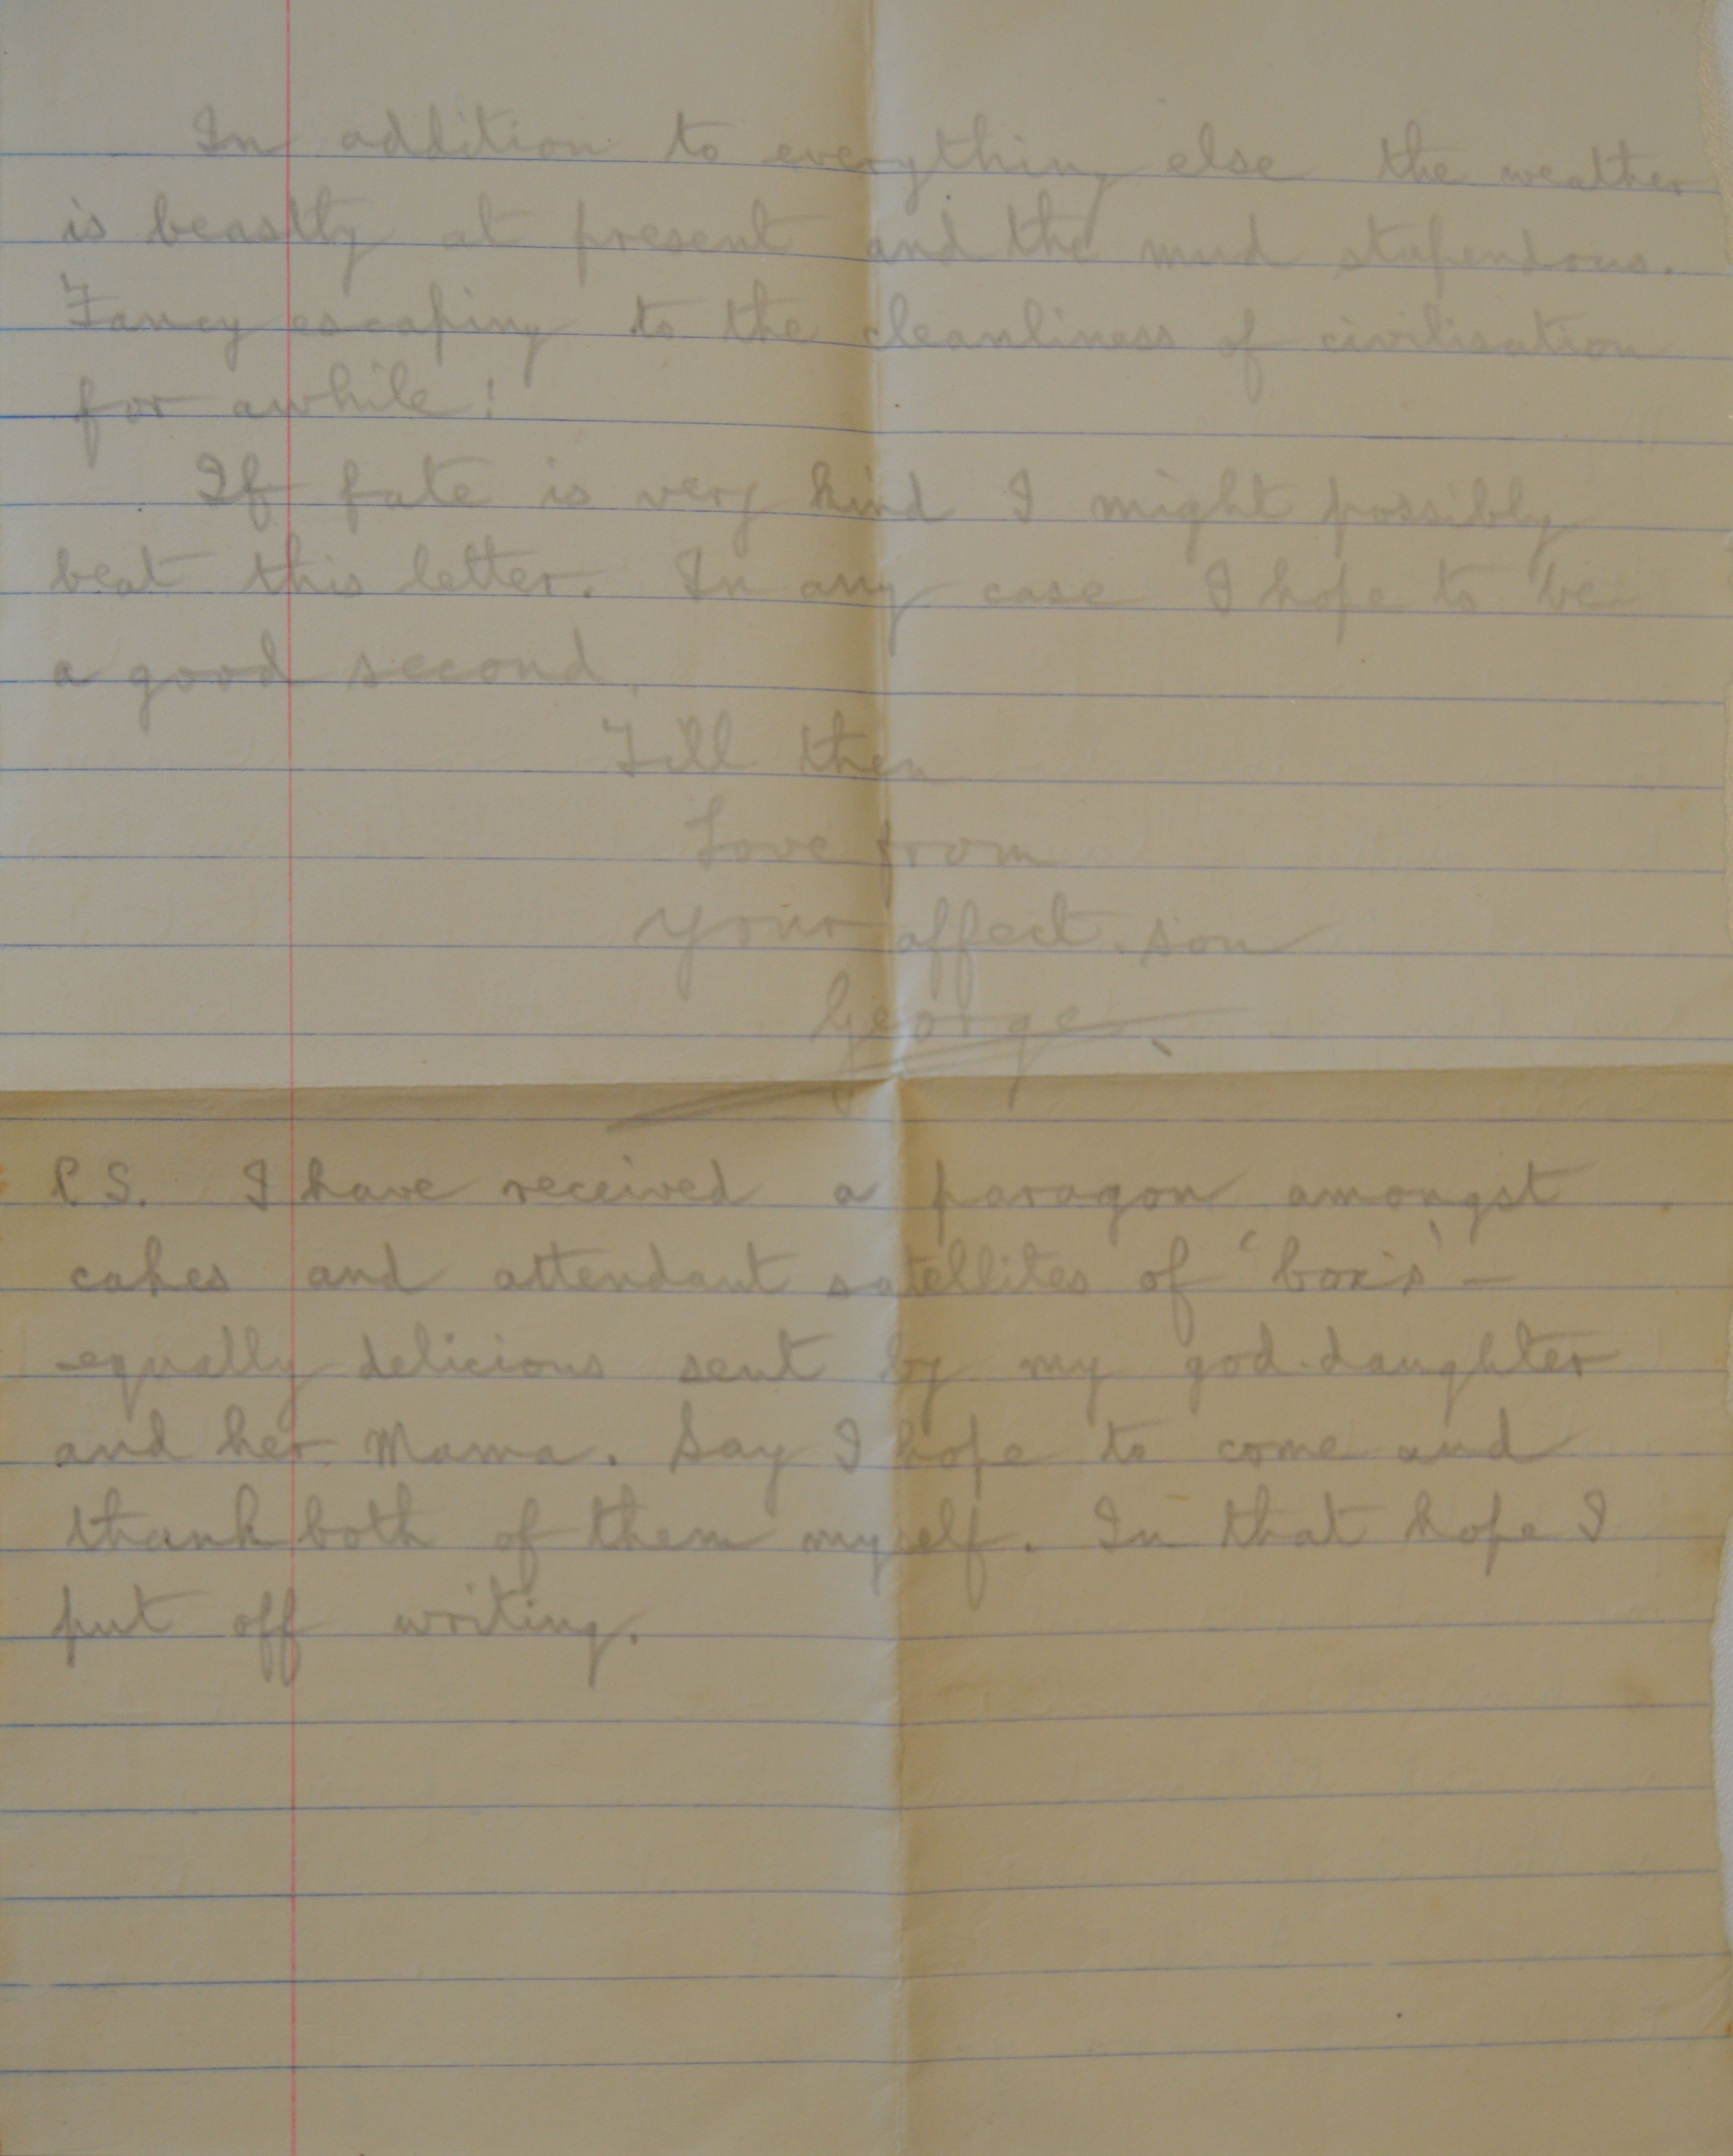 In addition to everything else the weather
is beastly at present and the mud stupendous.
Fancy escaping to the cleanliness of civilisation
for awhile!
If fate is very kind I might possibly
beat this letter. In any case I hope to be
a good second.
Till then
Love from
Your affect. son
George.
P.S. I have received a paragon amongst
cakes and attendant satellites of 'box's' —
equally delicious sent by my god-daughter
and her Mama. Say I hope to come and
thank both of them myself. In that hope I
put off writing.